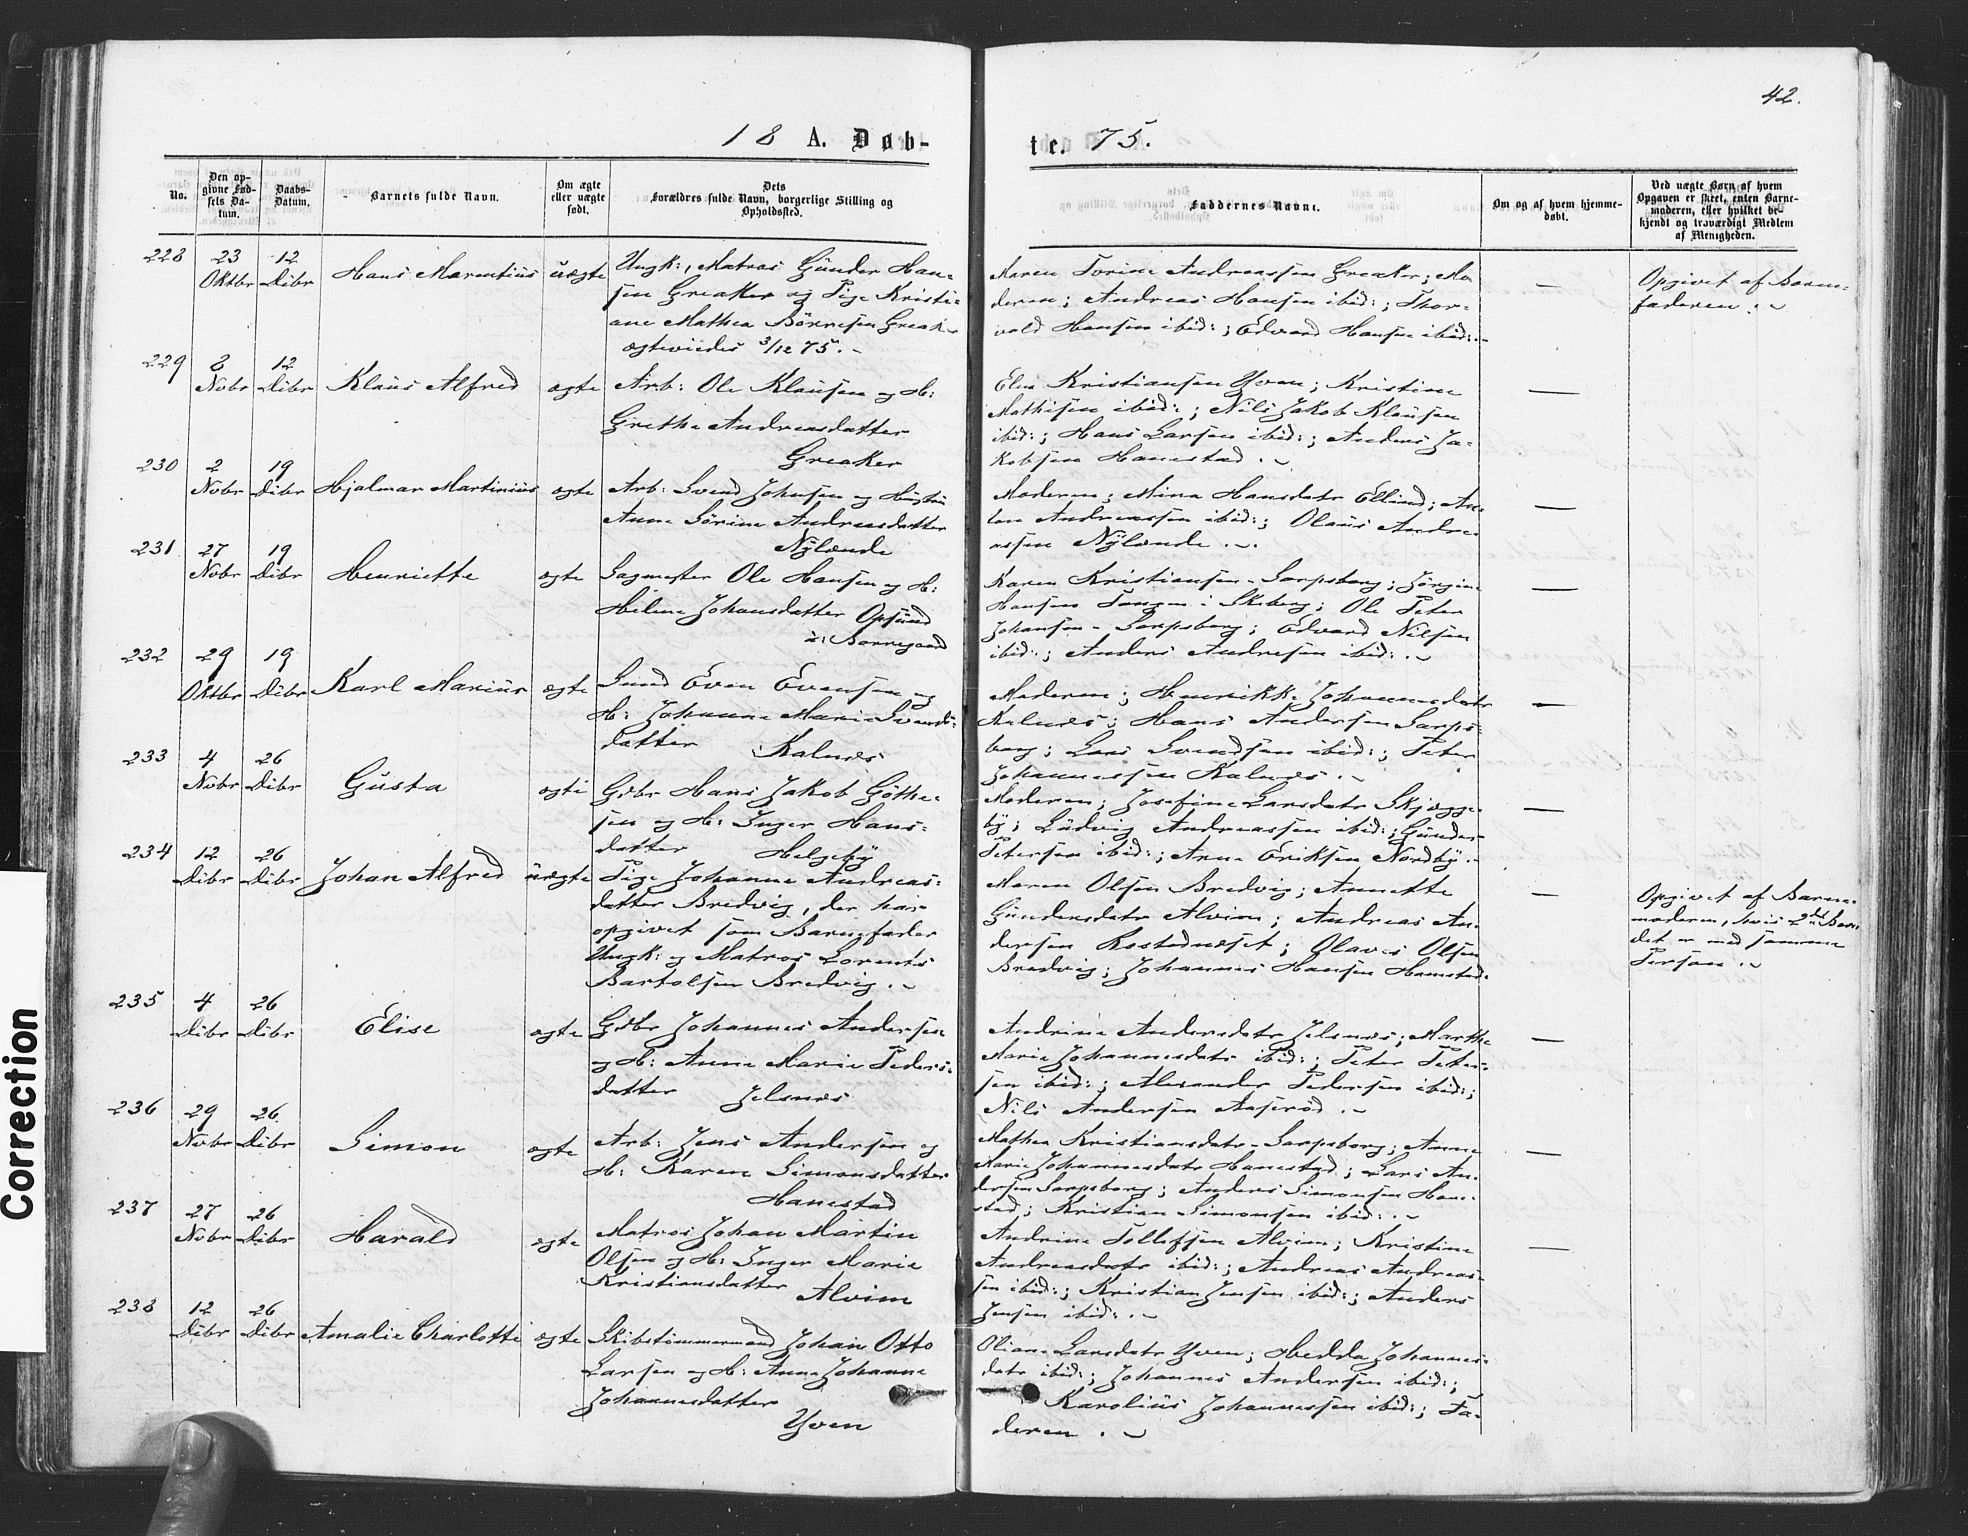 42.
18 A. Døb-
te. 75.
No.
Den op-
givne Fød-
sels Da-
tum.
Daabs-
Datum.
Barnets fulde Navn.
Om ægte
eller uægte
født.
Dets
Forældres fulde Navn, borgerlige Stilling og
Opholdssted.
Faddernes Navne.
Om og af hvem hjemme-
døbt.
Ved uægte Børn af hvem
Opgaven er skeet, enten Barne-
moderen, eller hvilket be-
kjendt og troværdigt Medlem
af Menigheden.
228 23 12
Oktbr Dibr Hans Marentius uægte
Ungk:, Matros Gunder Han-
sen Greaker og Pige Kristi-
ane Mathea Börresen Greaker
ægteviedes 3/12 75.
Maren Torine Andreassen Greaker; Mo
deren; Andreas Hansen ibid:; Thor-
vald Hansen ibid:; Edvard Hansen ibid:.
—
Opgivet af Barne-
faderen.
229 8 12
Nobr Dibr Klaus Alfred ægte
Arb: Ole Klausen og H:
Grethe Andreasdatter
Greaker
Elen Kristiansen Yven; Kristine
Mathisen ibid:; Nils Jakob Klausen
ibid:; Hans Larsen ibid:; Anders Ja-
kobsen Hanestad.
—
230 2 19
Nobr Dibr Hjalmar Martinius ægte
Arb: Svend Johnsen og Hustru
Anne Sörine Andreasdatter
Nylænde
Moderen; Mina Hansdatr; An-
ton Andreassen ibid:; Olaus Andre-
assen Nylænde.
—
231 27 19
Nobr Dibr Henriette ægte
Sagmester Ole Hansen og H:
Helene Johansdatter Opsund
i: Borregaard
Karen Kristiansen - Sarpsborg; Jörgine
Hansen Tangen i Skeberg; Ole Peter
Johansen - Sarpsborg; Edvard Nilsen
ibid:; Anders Andresen ibid:.
—
232 29 19
Oktbr Dibr Karl Marius ægte
Even Evensen og
H: Johanne Marie Svends-
datter Kalnæs
Moderen; Henrikke Johannesdatr
Kalnæs; Hans Andersen Sarps-
borg; Lars Svendsen ibid:; Peter
Johannessen Kalnæs.
—
233 4 26
Nobr Dibr Gusta ægte
Gdbr Hans Jakob Göthe-
sen og H: Inger Hans-
datter Helgeby
Moderen; Josefine Larsdatr Skjægge-
by; Ludvig Andreassen ibid:; Gunder
Petersen ibid:; Arne Eriksen Nordby.
—
234 12 26
Dibr Dibr Johan Alfred uægte
Pige Johanne Andreas-
datter Bredvig, der har
opgivet som Barnefader
Ungk: og Matros Lorents
Bartolsen Bredvig.
Maren Olsen Bredvig; Annette
Gundersdatr Alvim; Andreas An-
dersen Rostadnæset; Olaves Olsen
Bredvig; Johannes Hansen Hanestad.
—
Opgivet af Barne-
moderen, hvis 2det Barn
det er med samme
Person.
235 4 26
Dibr Dibr Elise ægte
Gdbr Johannes Andersen
og H: Anne Marie Peders-
datter Jelsnæs
Andrine Andersdatr Jelsnæs; Marthe
Marie Johannesdatr ibid:; Peter Peter-
sen ibid:; Alexander Pedersen ibid:;
Nils Andersen Aaseröd.
—
236 29 26
Nobr Dibr Simon ægte
Arb: Jens Andersen og
H: Karen Simonsdatter
Hanestad
Mathea Kristiansdatr - Sarpsborg; Anne
Marie Johannesdatr Hanestad; Lars An-
dersen Sarpsborg; Anders Simonsen Hane-
stad; Kristian Simonsen ibid:.
—
237 27 26
Nobr Dibr Harald ægte
Matros Johan Martin
Olsen og H: Inger Marie
Kristiansdatter Alvim
Andrine Tollefsen Alvim; Kristine
Andreasdatr ibid:; Andreas Andreas-
sen ibid:; Kristian Jensen ibid:; Anders
Jensen ibid:.
—
238 12 26
Dibr Dibr Amalie Charlotte ægte
Skibstömmermand Johan Otto
Larsen og H: Anne Johanne
Johannesdatter
Yven
Oliane Larsdatr Yven; Hedda Johannes-
datr ibid:; Johannes Andersen ibid:;
Karolius Johannessen ibid:; Fa-
deren.
Correction